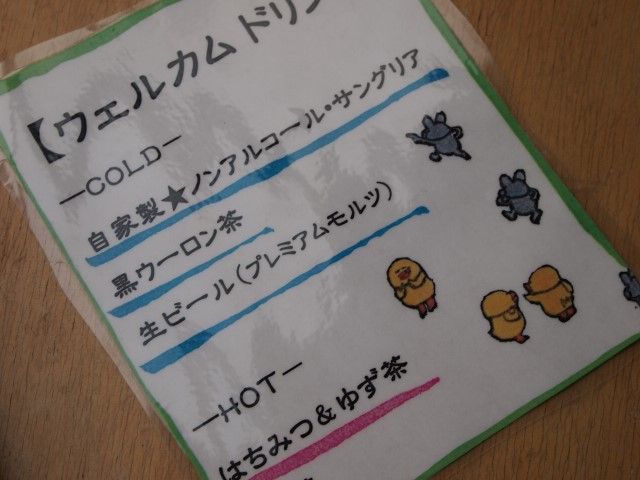 【ウェルカムドリン
－COLD－
自家製★ノンアルコール・サングリア
黒ウーロン茶
生ビール（プレミアムモルツ）
－HOT－
はちみつ＆ゆず茶